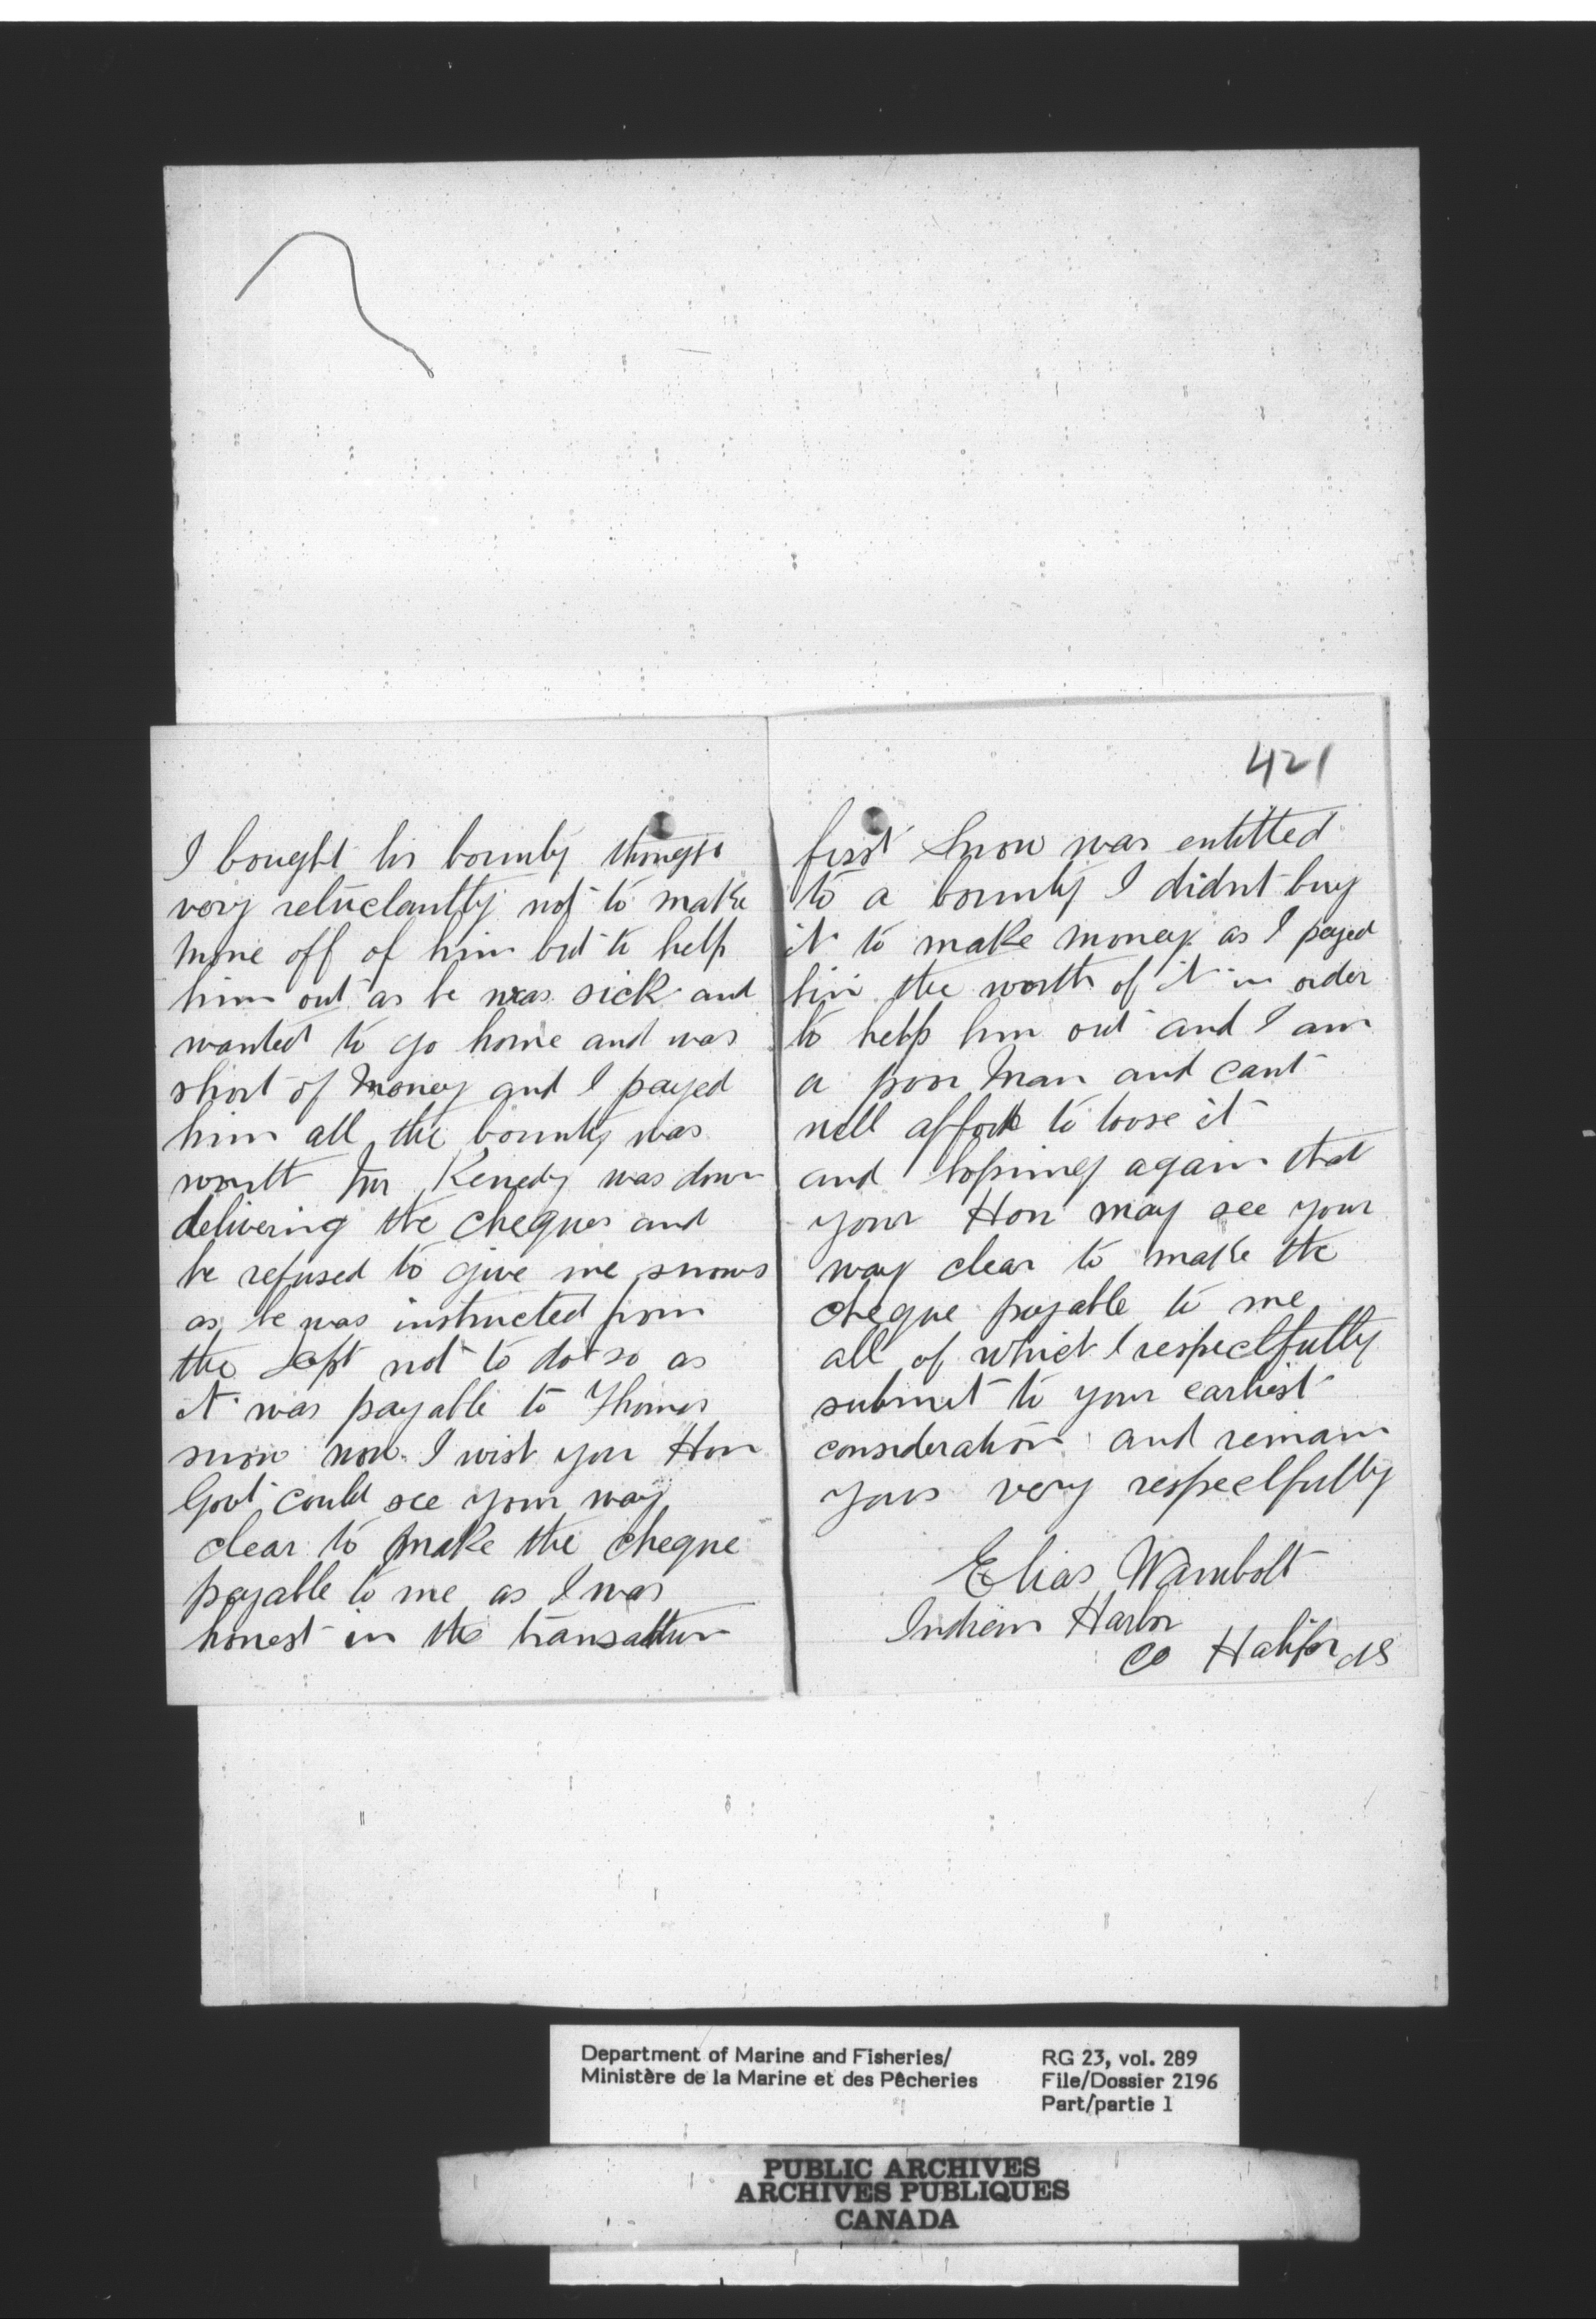 421
I bought his bounty though
very reluclantly not to make
mone off of him but to help
him out as he was sick and
wanted to go home and was
short of money and I payed
him all the bounty was
worth Mr Kenedy was down
delivering the cheques and
he refused to give me snows
as he was instructed from
the Dept not to do so as
it was payable to Thomas
snow now I wish you Hon
Govt could see your way
clear to make the cheque
payable to me as I was
honest in the transattion
first Snow was entitled
to a bounty I didnt buy
it to make money as I payed
him the worth of it in order
to help him out and I am
a poor Man and cant
well afford to loose it
and hoping again that
your Hon may see your
way clear to make the
cheque payable to me
all of which I respectfully
submit to your earliest
consideration and remain
yours very respectfully
Elias Wambolt
Indian Harbor
Co Halifax NS
Department of Marine and Fisheries/
Ministère de la Marine et des Pêcheries
RG 23, vol. 289
File/Dossier 2196
Part/partie 1
PUBLIC ARCHIVES
ARCHIVES PUBLIQUES
CANADA